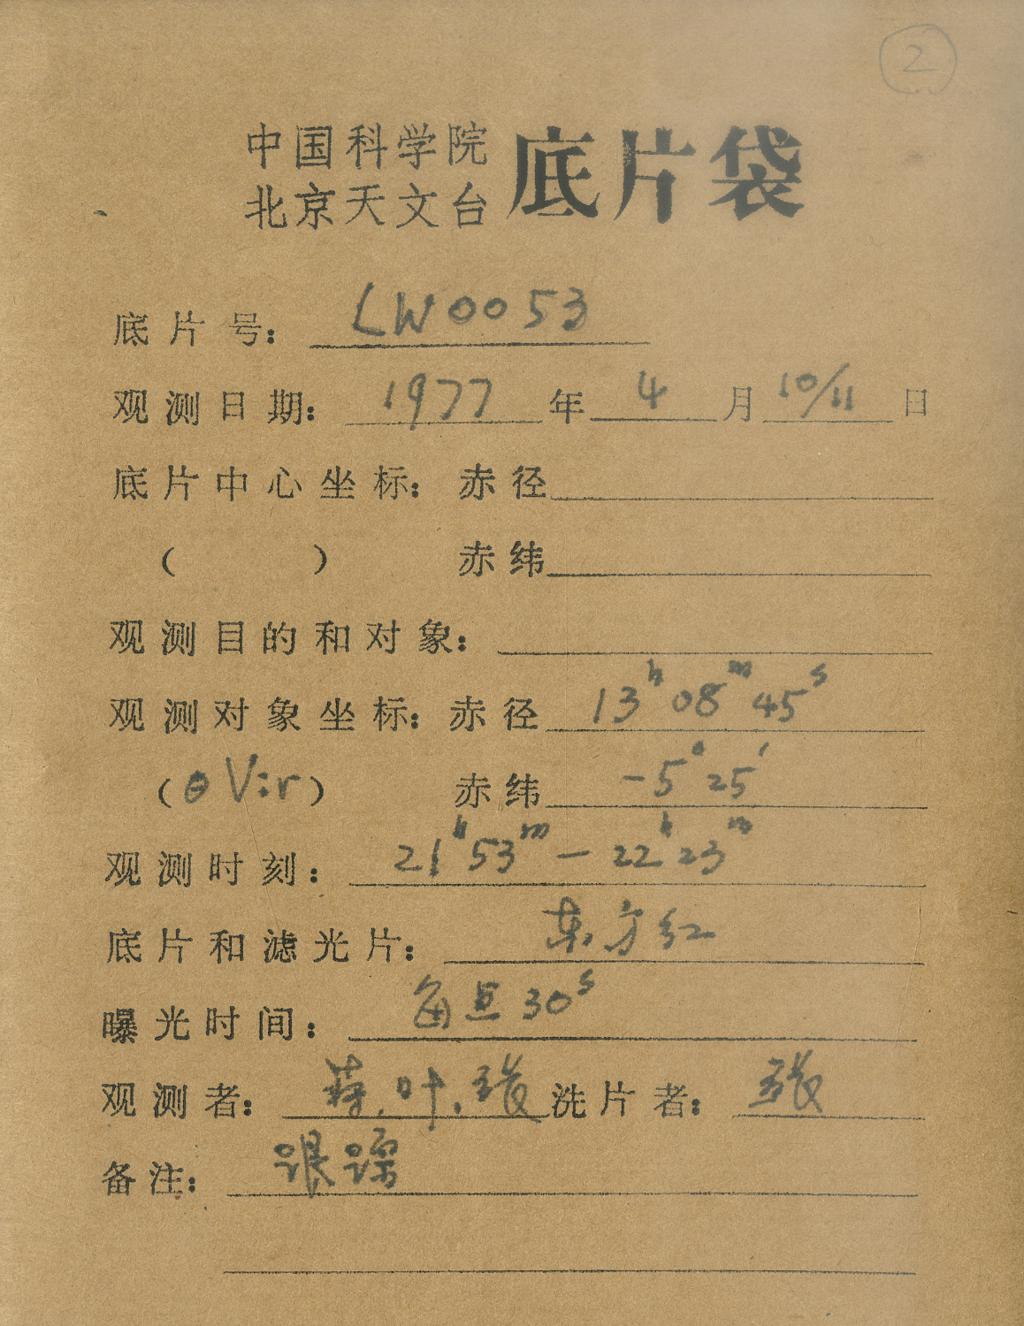 ②
中国科学院
北京天文台 底片袋
底片号: LW0053
观测日期: 1977年4月10/11日
底片中心坐标: 赤径
( ) 赤纬
观测目的和对象:
观测对象坐标: 赤径 13ʰ08ᵐ45ˢ
(θVir) 赤纬 -5°25′
观测时刻: 21ʰ53ᵐ-22ʰ23ᵐ
底片和滤光片: 东方红
曝光时间: 每点30ˢ
观测者: 蒋.叶. 洗片者:
备注: 跟踪